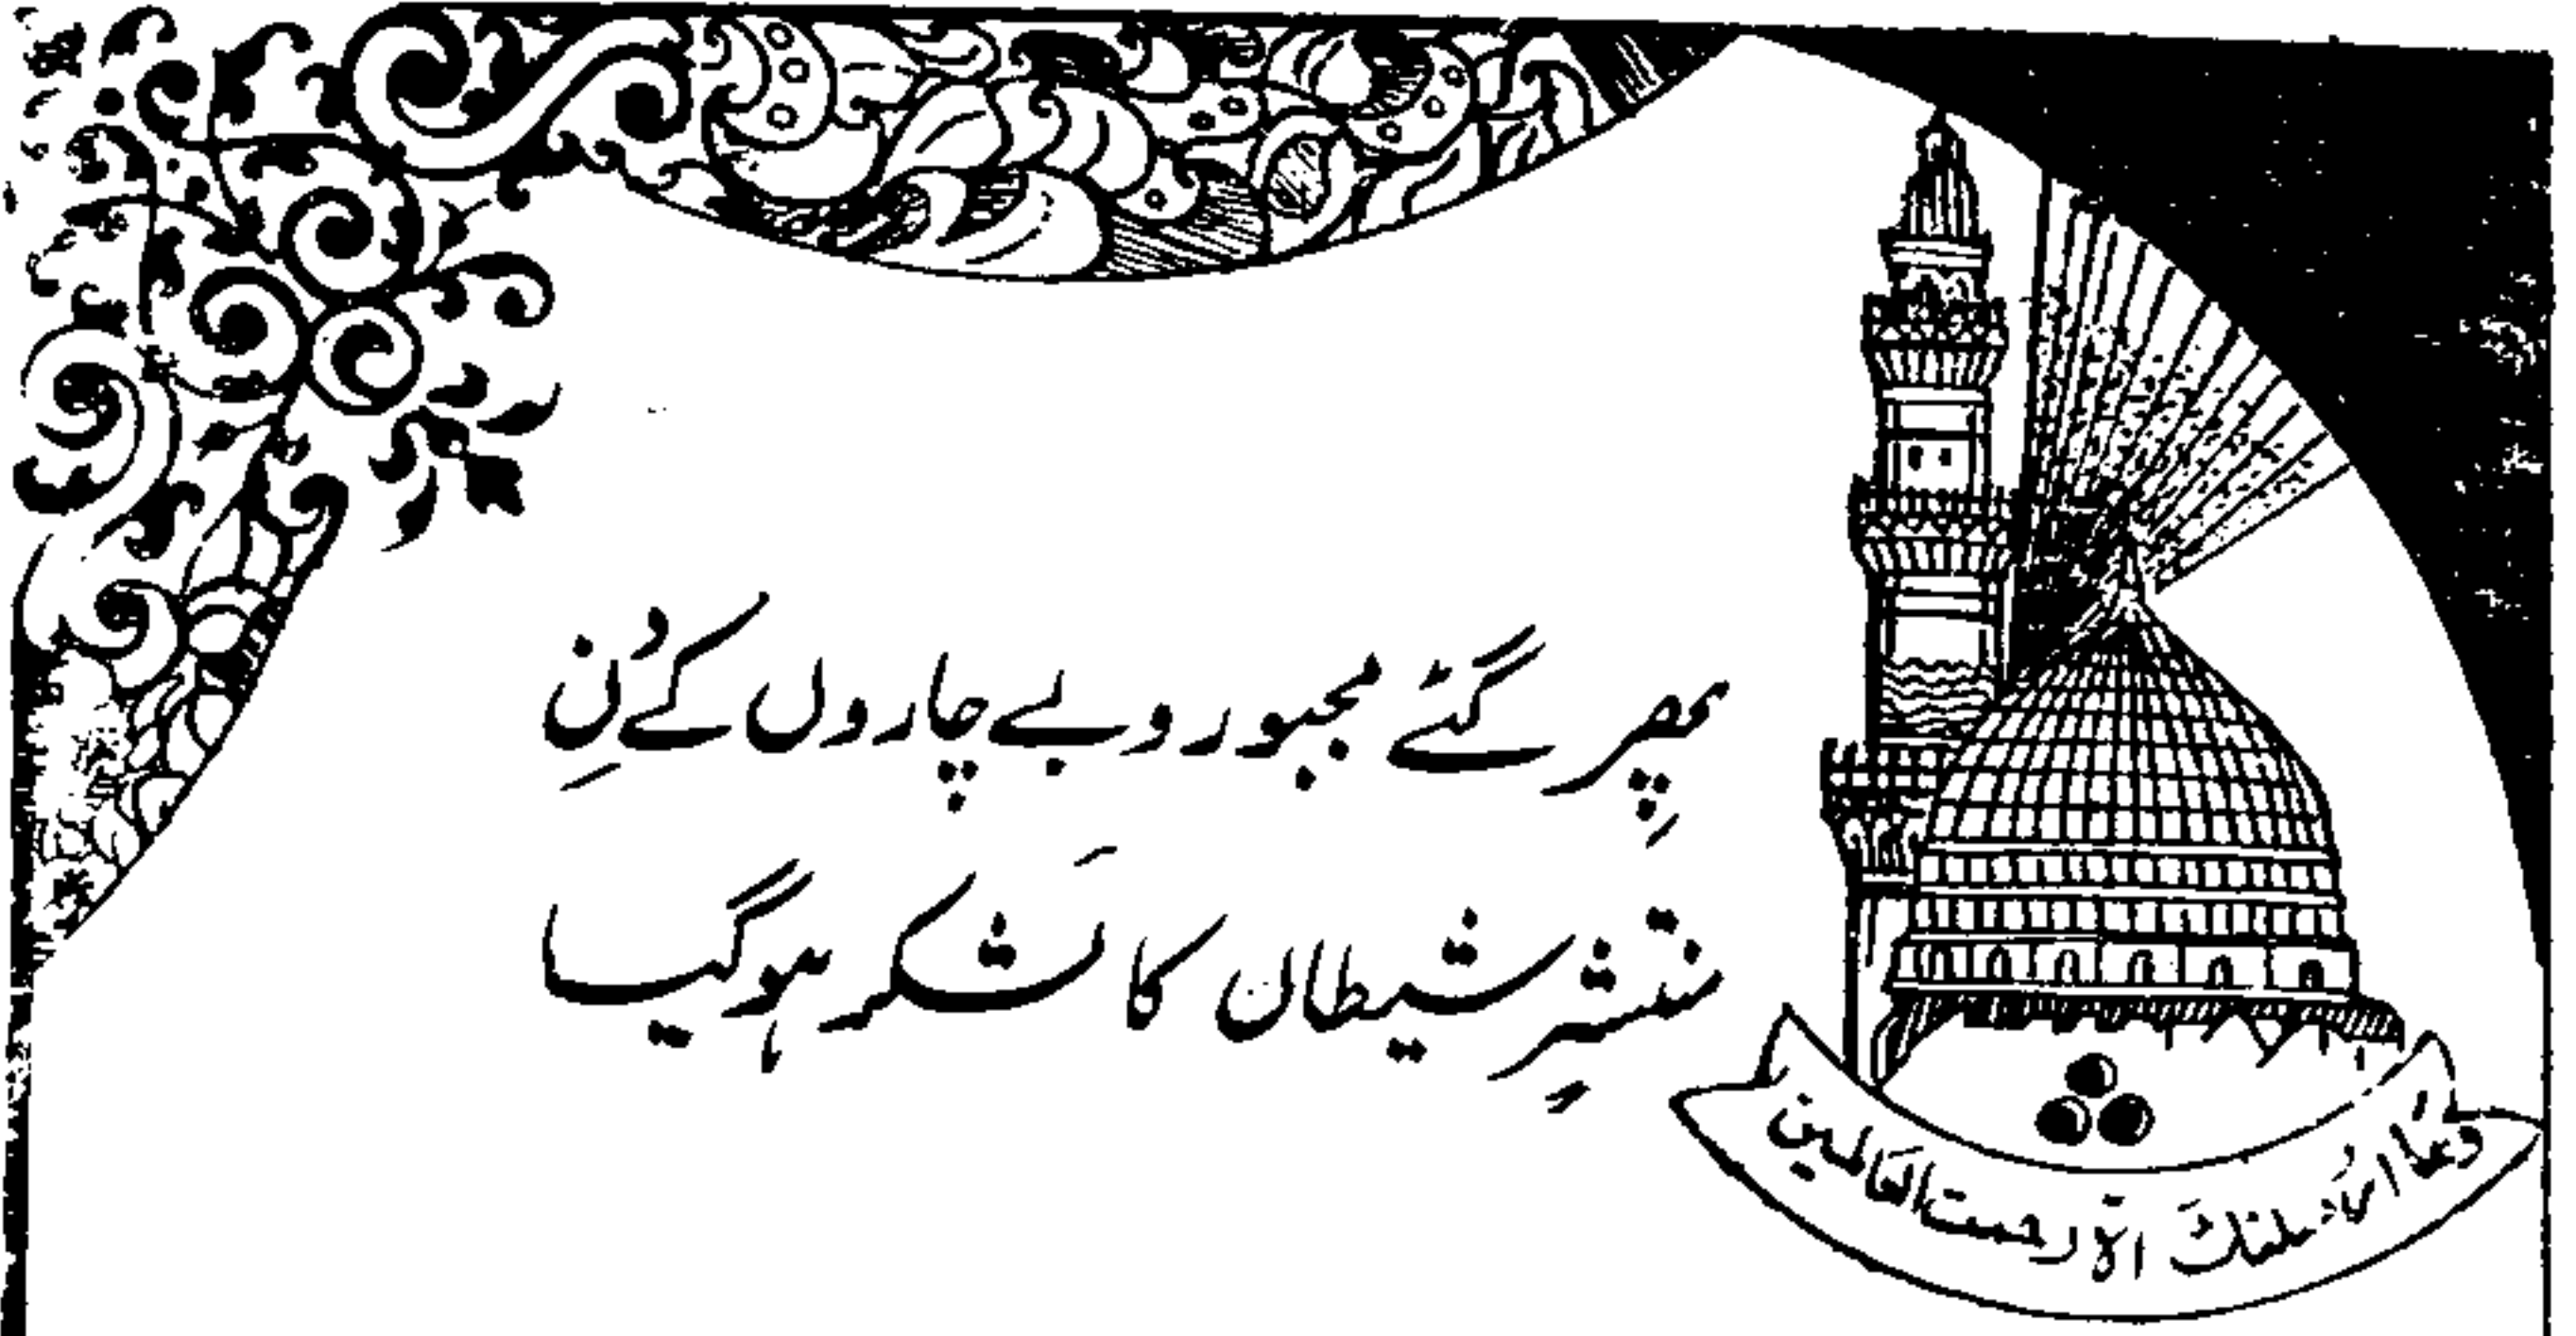 پھِر گئے مجبور و بے چاروں کے دُنِ
منتشِر شیطان کا لَشکر ہوگیا
وَمَا اَرْسلنٰكَ اِلّا رحمت العَالمین